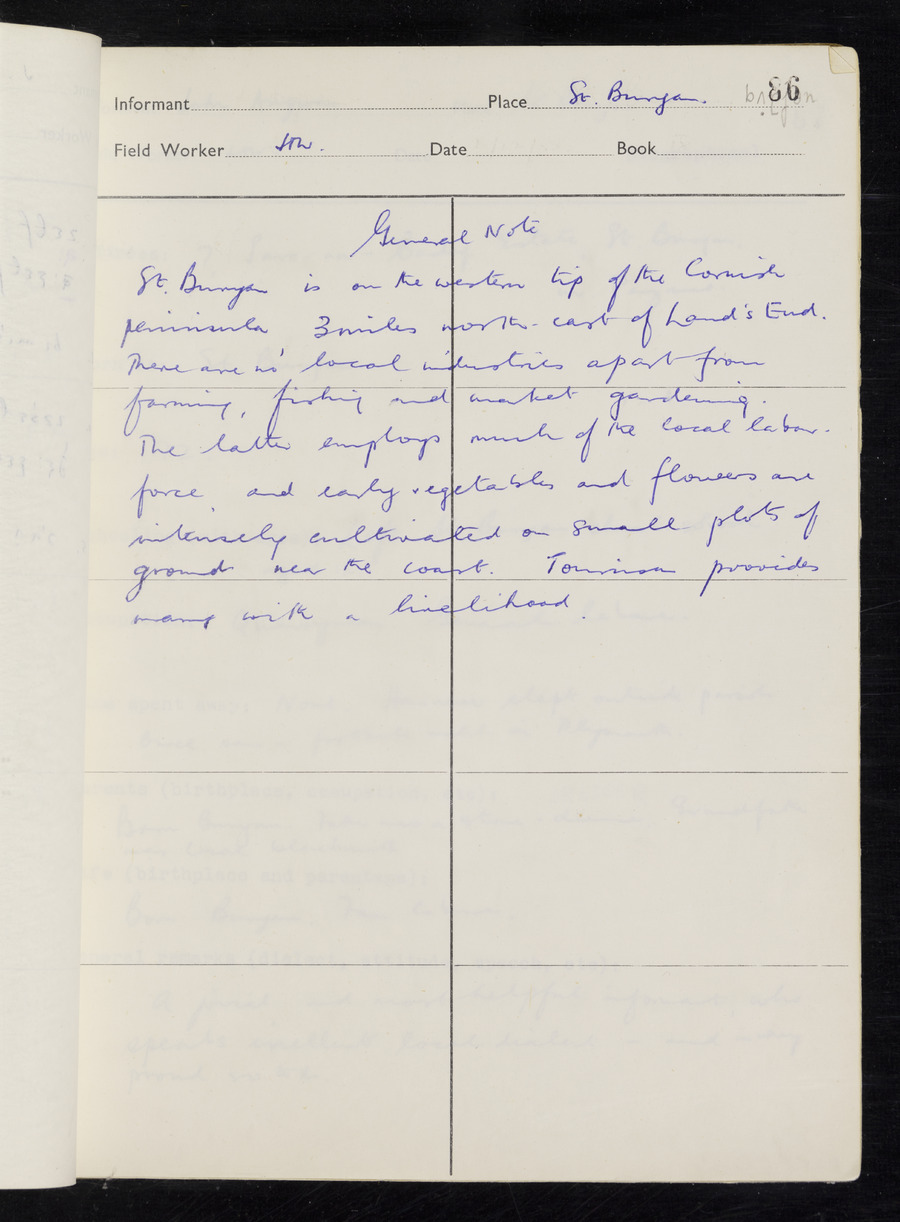 Informant Place St. Buryan. 86
Field Worker JTW. Date Book
General Note
St. Buryan is on the western tip of the Cornish
peninsula 3 miles north-east of Land's End.
There are no local industries apart from
farming, fishing and market gardening.
The latter employs much of the local labour-
force and early vegetables and flowers are
intensely cultivated on small plots of
ground near the coast. Tourism provides
many with a livelihood.